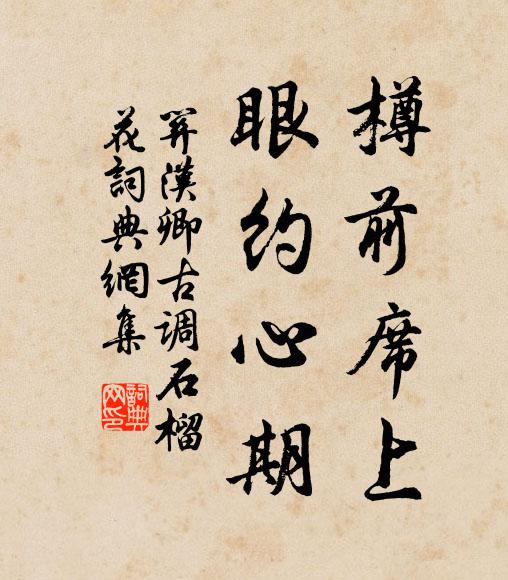 樽前席上
眼约心期
関漢卿古调石榴
花詞典網集
詞典
网印